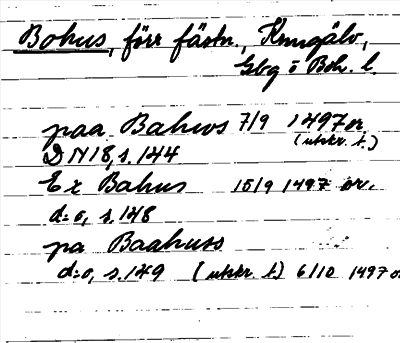 Bohus, förr fästn., Kungälv,
Gbg o Boh. l.
paa Bahws 7/9 1497 or
(utskr. f.)
DN 18, s. 144
Ex Bahus 15/9 1497 or.
d:o, s. 148
pa Baahuss
d:o, s. 149 (utskr. f.) 6/10 1497 or